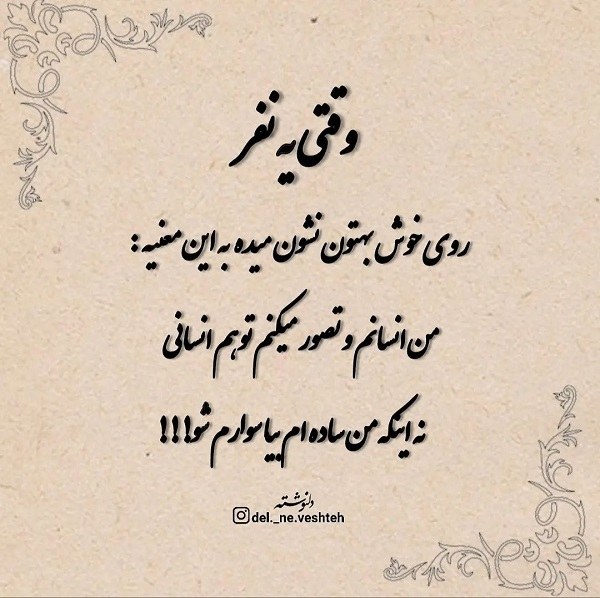 وقتی یه نفر
روی خوش بهتون نشون میده به این معنیه :
من انسانم و تصور میکنم تو هم انسانی
نه اینکه من ساده ام بیا سوارم شو!!!
دلنوشته
del._ne.veshteh